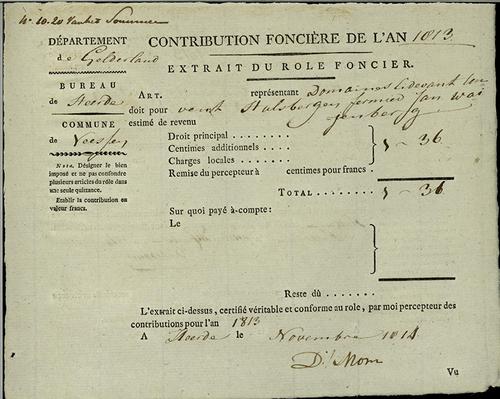 DÉPARTEMENT
de Gelderland
BUREAU
de Heerde
COMMUNE
de Veessen
Nota. Désigner le bien
imposé et ne pas confondre
plusieurs articles du rôle dans
une seule quittance.
Etablir la contribution en
valeur francs.
CONTRIBUTION FONCIÈRE DE L'AN 1813
EXTRAIT DU ROLE FONCIER.
ART. représentant Domaines
doit pour
estimé de revenu
Droit principal
Centimes additionnels
Charges locales
36
Remise du percepteur à centimes pour francs.
TOTAL 36
Sur quoi payé à-compte:
Le
Reste dû
L'extrait ci-dessus, certifié véritable et conforme au role, par moi percepteur des
contributions pour l'an 1813
A Heerde le Novembre 1814
Vu